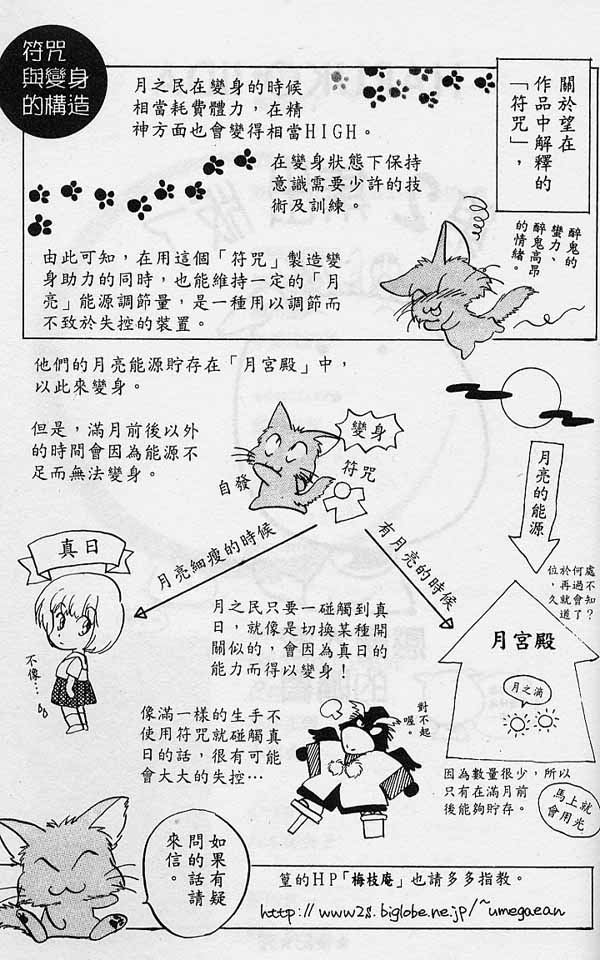 符咒
與變身
的構造
月之民在變身的時候
相當耗費體力，在精
神方面也會變得相當HIGH。
關於望在
作品中解釋的
「符咒」，
在變身狀態下保持
意識需要少許的技
術及訓練。
醉鬼的
蠻力、
醉鬼高昂
的情緒。
由此可知，在用這個「符咒」製造變
身助力的同時，也能維持一定的「月
亮」能源調節量，是一種用以調節而
不致於失控的裝置。
他們的月亮能源貯存在「月宮殿」中，
以此來變身。
但是，滿月前後以外
的時間會因為能源不
足而無法變身。
變身
符咒
自發
月亮的能源
月亮細瘦的時候
有月亮的時候
真日
不像…
月之民只要一碰觸到真
日，就像是切換某種開
關似的，會因為真日的
能力而得以變身！
位於何處
，再過不
久就會知
道了？
月宮殿
月之滴
像滿一樣的生手不
使用符咒就碰觸真
日的話，很有可能
會大大的失控…
對不起
喔。
因為數量很少，所以
只有在滿月前
後能夠貯存。
馬上就
會用光
如果有疑
問的話請
來信。
篁的HP「梅枝庵」也請多多指教。
http://www2s.biglobe.ne.jp/~umegaean